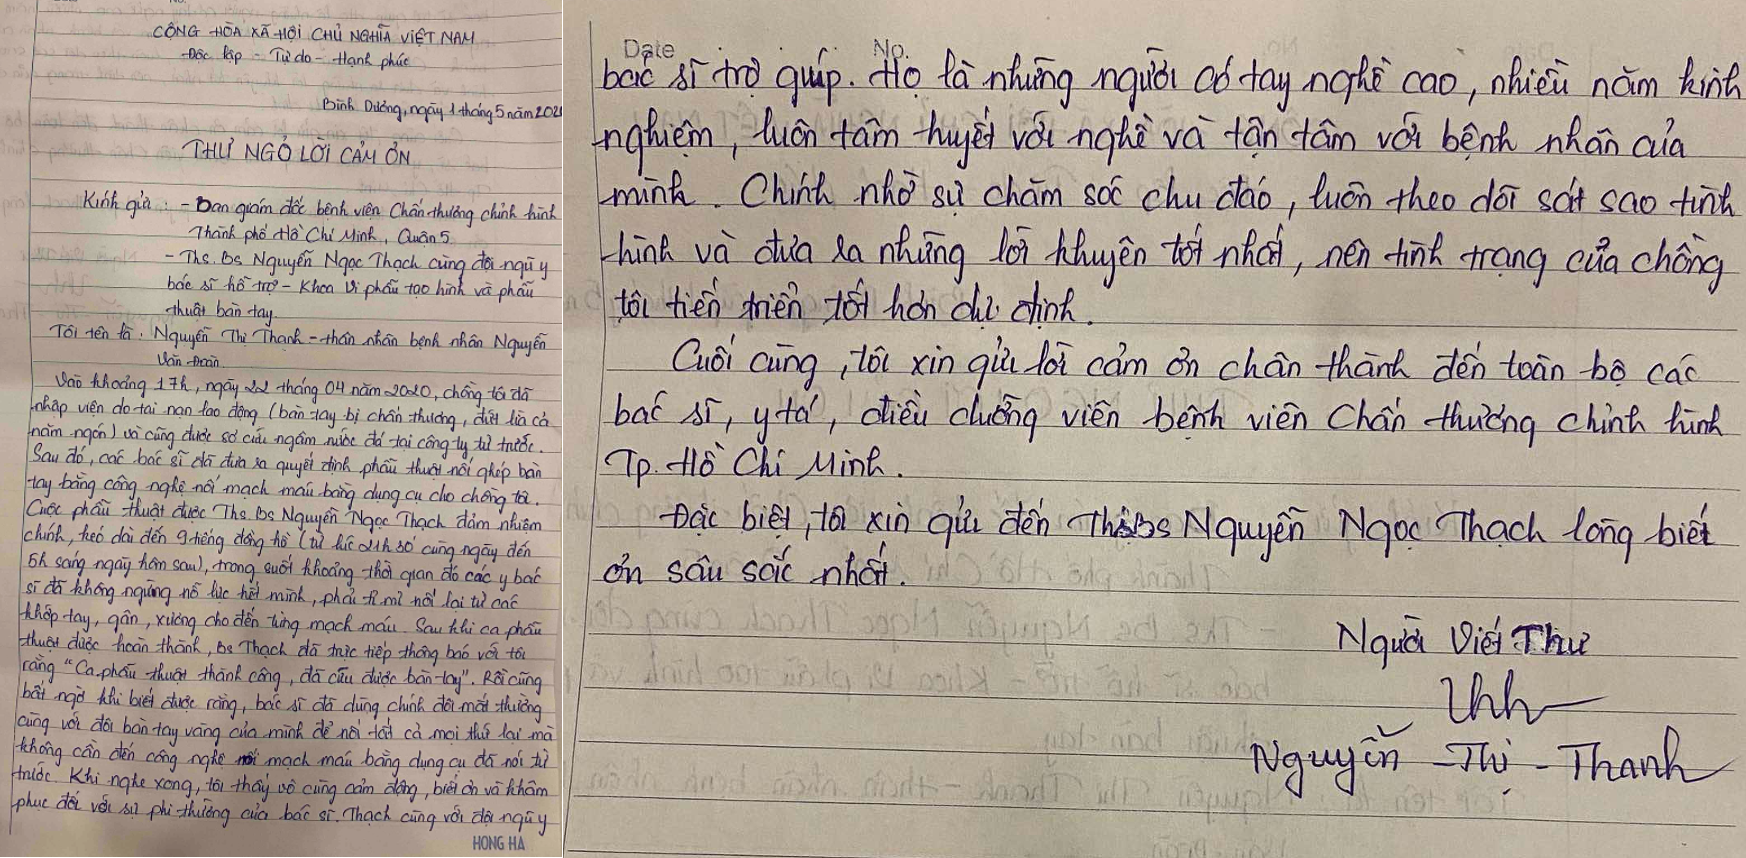 CỘNG HÒA XÃ HỘI CHỦ NGHĨA VIỆT NAM
Độc lập - Tự do - Hạnh phúc
Bình Dương, ngày 1 tháng 5 năm 202
THƯ NGỎ LỜI CẢM ƠN
Kính gửi : - Ban giám đốc bệnh viện Chấn thương chỉnh hình
Thành phố Hồ Chí Minh, Quận 5
- Ths. Bs Nguyễn Ngọc Thạch cùng đội ngũ y
bác sĩ hỗ trợ - Khoa Vi phẫu tạo hình và phẫu
thuật bàn tay.
Tôi tên là : Nguyễn Thị Thanh - thân nhân bệnh nhân Nguyễn
Văn
Vào khoảng 17h, ngày 22 tháng 04 năm 2020, chồng tôi đã
nhập viện do tai nạn lao động (bàn tay bị chấn thương, đứt lìa cả
năm ngón) và cũng được sơ cứu ngâm nước đá tại công ty từ trước.
Sau đó, các bác sĩ đã đưa ra quyết định phẫu thuật nối ghép bàn
tay bằng công nghệ nối mạch máu bằng dụng cụ cho chồng tôi.
Cuộc phẫu thuật được Ths. Bs Nguyễn Ngọc Thạch đảm nhiệm
chính, kéo dài đến 9 tiếng đồng hồ (từ lúc cùng ngày đến
5h sáng ngày hôm sau), trong suốt khoảng thời gian đó các y bác
sĩ đã không ngừng nỗ lực hết mình, phải tỉ mỉ nối lại từ các
khớp tay, gân, xương cho đến từng mạch máu. Sau khi ca phẫu
thuật được hoàn thành, Bs Thạch đã trực tiếp thông báo với tôi
rằng "Ca phẫu thuật thành công, đã cứu được bàn tay". Rồi cũng
bất ngờ khi biết được rằng, bác sĩ đã dùng chính đôi mắt thường
cùng với đôi bàn tay vàng của mình để nối tất cả mọi thứ lại mà
không cần đến công nghệ nối mạch máu bằng dụng cụ đã nói từ
trước. Khi nghe xong, tôi thấy vô cùng cảm động, biết ơn và khâm
phục đối với sự phi thường của bác sĩ. Thạch cùng với đội ngũ y
HONG HA
Date No.
bác sĩ trợ giúp. Họ là những người có tay nghề cao, nhiều năm kinh
nghiệm, luôn tâm huyết với nghề và tận tâm với bệnh nhân của
mình. Chính nhờ sự chăm sóc chu đáo, luôn theo dõi sát sao tình
hình và đưa ra những lời khuyên tốt nhất, nên tình trạng của chồng
tôi tiến triển tốt hơn dự định.
Cuối cùng, tôi xin gửi lời cảm ơn chân thành đến toàn bộ các
bác sĩ, y tá, điều dưỡng viên bệnh viện Chấn thương chỉnh hình
Tp. Hồ Chí Minh.
Đặc biệt, tôi xin gửi đến ThsBs Nguyễn Ngọc Thạch lòng biết
ơn sâu sắc nhất.
Người Viết Thư
Nguyễn - Thị - Thanh